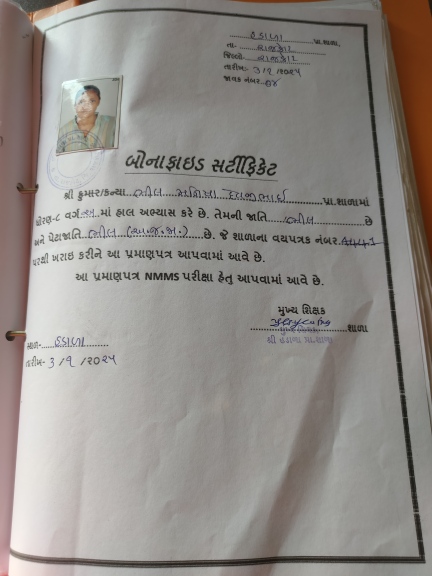 હડાળા પ્રા.શાળા,
તા- રાજકોટ
જિલ્લો- રાજકોટ
તારીખ- 3/૧/૨૦૨૫
જાવક નંબર
બોનાફાઇડ સર્ટીફિકેટ
શ્રી કુમાર/કન્યા ભીલ પ્રા.શાળામાં
ધોરણ-૮ વર્ગ માં હાલ અભ્યાસ કરે છે. તેમની જાતિ ભીલ છે
અને પેટાજાતિ ભીલ (અ.જ.જા.) છે. જે શાળાના વયપત્રક નંબર
પરથી ખરાઇ કરીને આ પ્રમાણપત્ર આપવામાં આવે છે.
આ પ્રમાણપત્ર NMMS પરીક્ષા હેતુ આપવામાં આવે છે.
મુખ્ય શિક્ષક
શાળા
શ્રી હડાળા પ્રા.શાળા
સ્થળ- હડાળા
તારીખ- 3/૧/૨૦૨૫